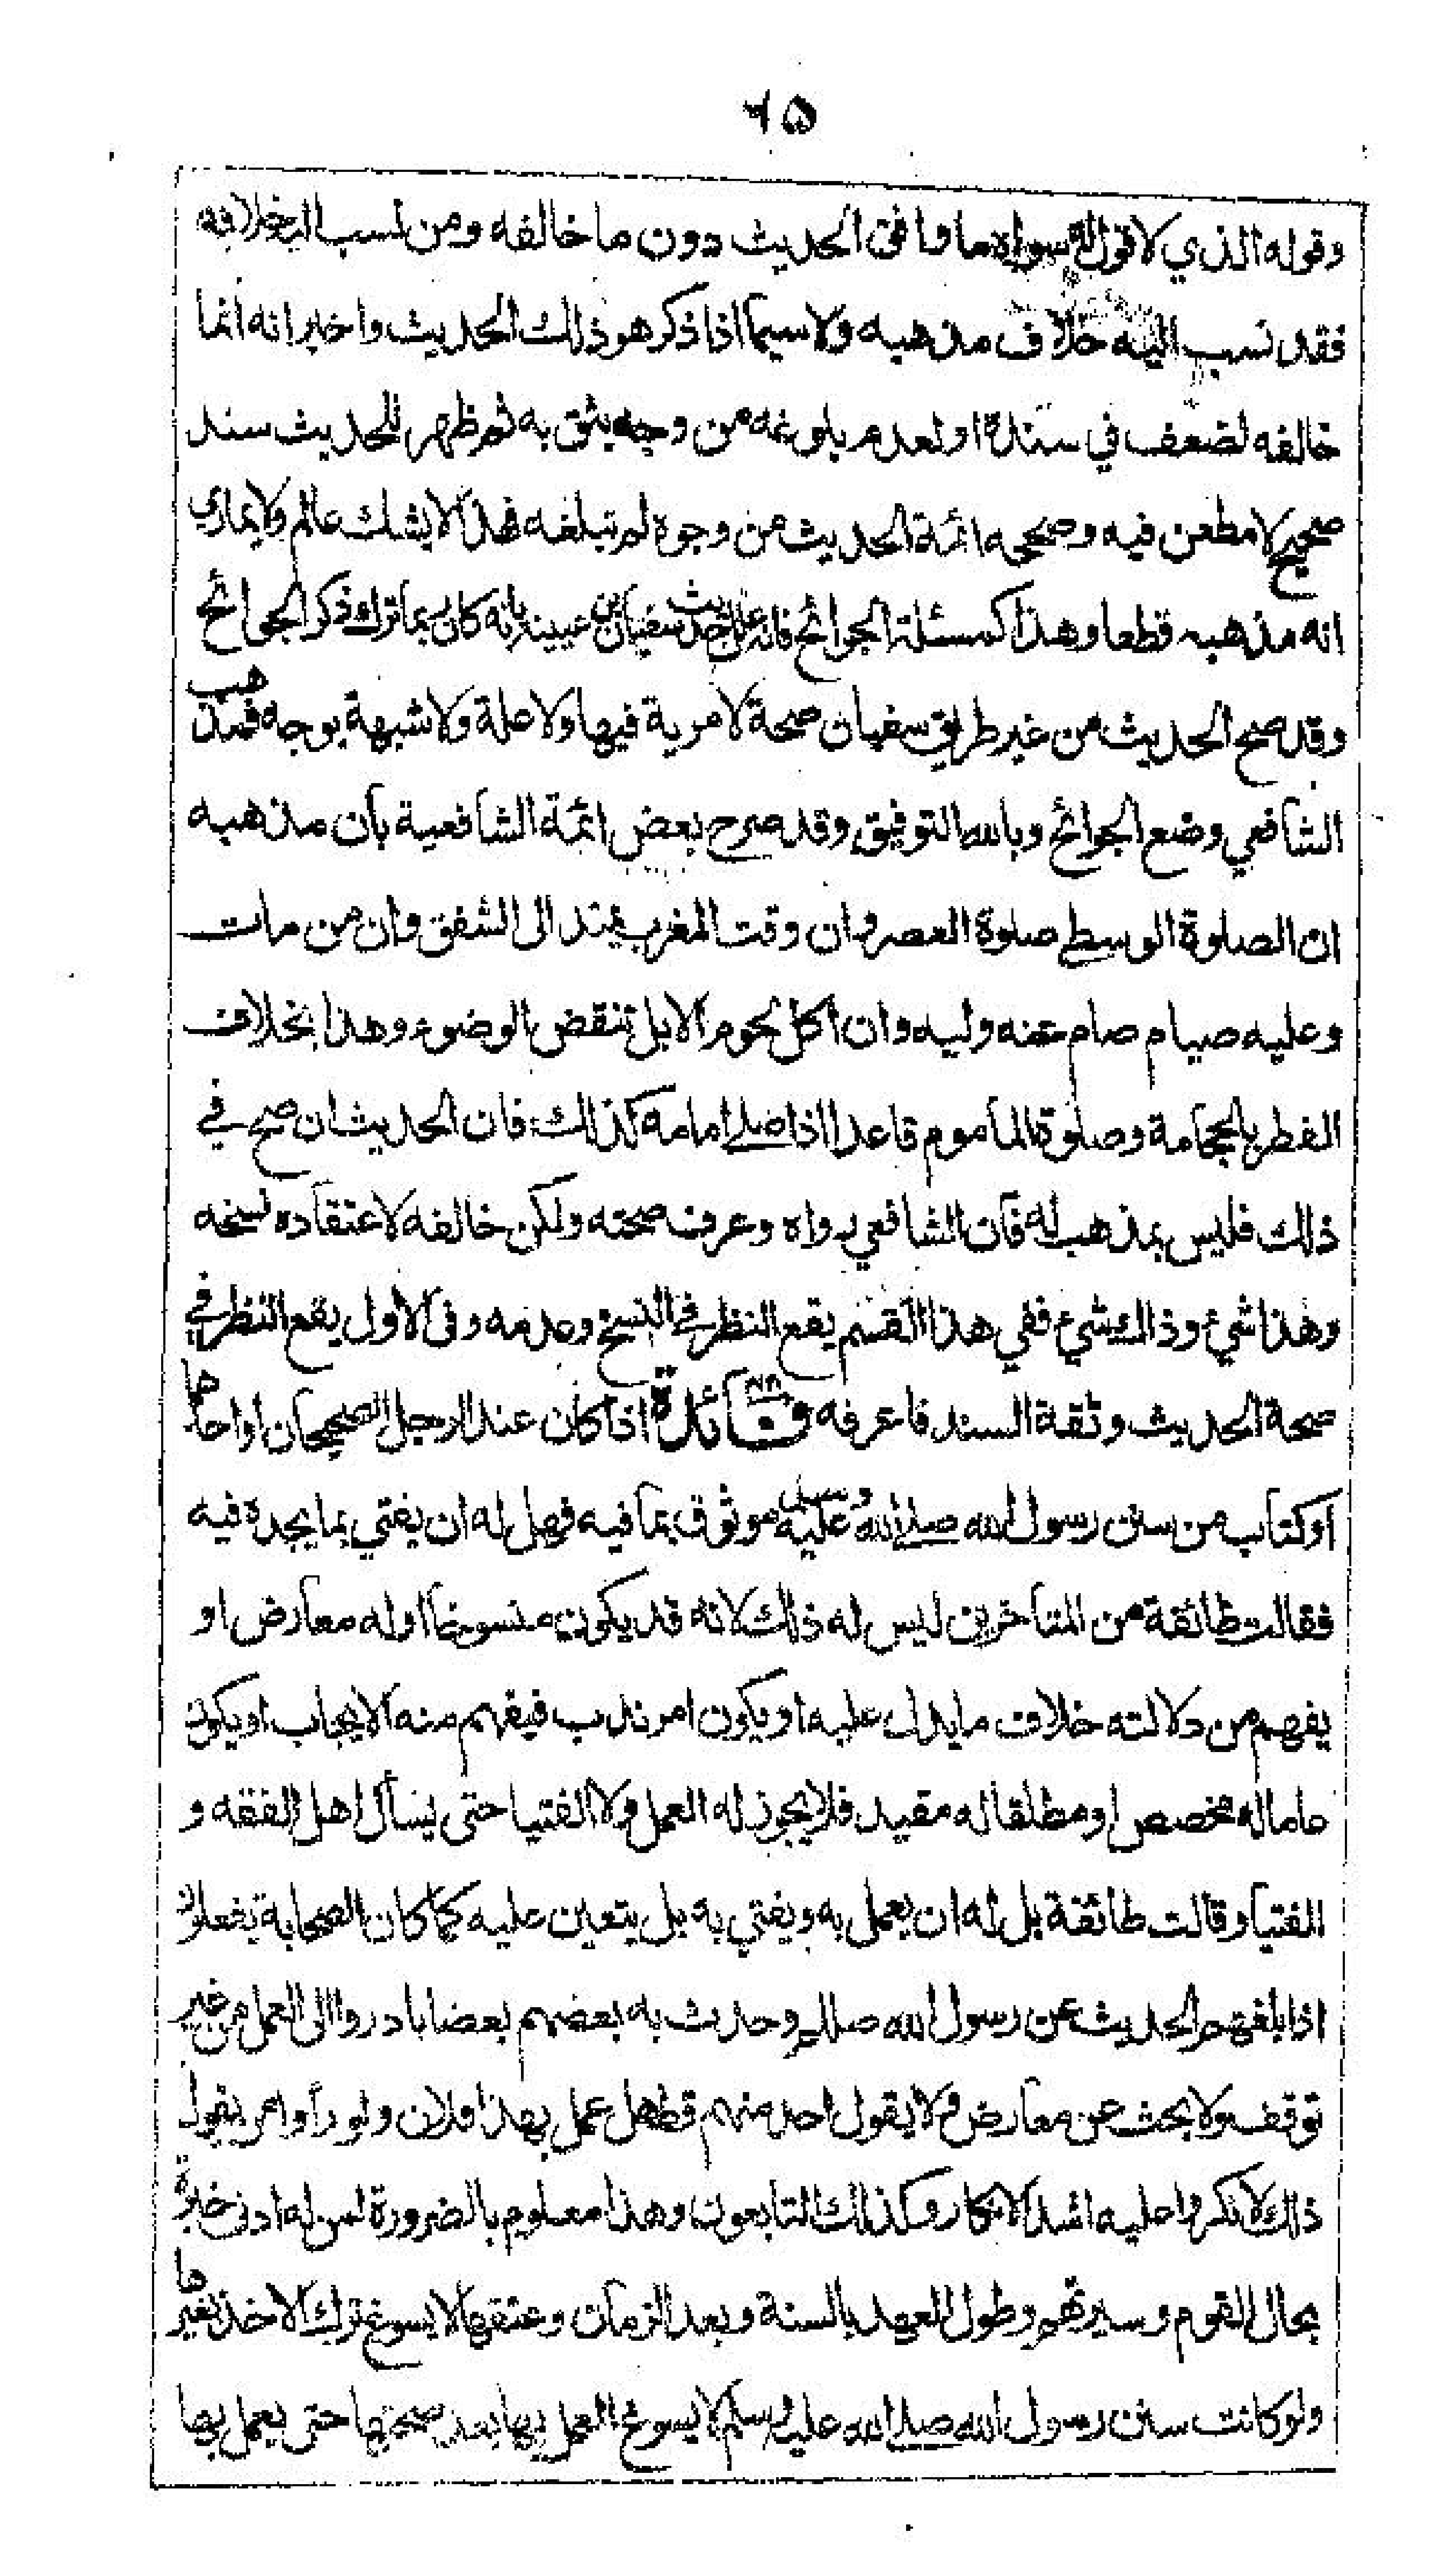 ٦٥
وقوله الذي لا قول له سواه ما وافق الحديث دون ما خالفه ومن نسب اليه خلافه
فقد نسب اليه خلاف مذهبه ولا سيما اذا ذكر هو ذلك الحديث واخبر انه انما
خالفه لضعف في سنده او لعدم بلوغه من وجه يثق به ثم ظهر للحديث سند
صحيح لا مطعن فيه وصححه ائمة الحديث من وجوه لم تبلغه فهذا لا يشك عالم ولا يماري
انه مذهبه قطعا وهذا كمسئلة الجوائح فانه علل حديث سفيان بن عيينة بانه كان ربما ترك ذكر الجوائح
وقد صح الحديث من غير طريق سفيان صحة لا مرية فيها ولا علة ولا شبهة بوجه فمذهب
الشافعي وضع الجوائح وبالله التوفيق وقد صرح بعض ائمة الشافعية بأن مذهبه
ان الصلوة الوسطى صلوة العصر وان وقت المغرب يمتد الى الشفق وان من مات
وعليه صيام صام عنه وليه وان اكل لحوم الابل تنقض الوضوء وهذا بخلاف
الفطر بالحجامة وصلوة المأموم قاعدا اذا صلى امامه كذلك فان الحديث ان صح في
ذلك فليس بمذهب له فان الشافعي رواه وعرف صحته ولكن خالفه لاعتقاده نسخه
وهذا شيء وذاك شيء ففي هذا القسم يقع النظر في النسخ وعدمه وفى الاول يقع النظر في
صحة الحديث وثقة السند فاعرفه فائدة اذا كان عند الرجل الصحيحان او احدهما
او كتاب من سنن رسول الله صلى الله عليه وسلم موثوق بما فيه فهل له ان يفتي بما يجده فيه
فقالت طائفة من المتأخرين ليس له ذلك لانه قد يكون منسوخا او له معارض او
يفهم من دلالته خلاف ما يدل عليه او يكون امر ندب فيفهم منه الايجاب او يكون
عاما له مخصص او مطلقا له مقيد فلا يجوز له العمل ولا الفتيا حتى يسأل اهل الفقه و
الفتيا وقالت طائفة بل له ان يعمل به ويفتي به بل يتعين عليه كما كان الصحابة يفعلون
اذا بلغهم الحديث عن رسول الله صللم وحدث به بعضهم بعضا بادروا الى العمل من غير
توقف ولا بحث عن معارض ولا يقول احد منهم قط هل عمل بهذا فلان ولو رأوا من يقول
ذلك لانكروا عليه اشد الانكار وكذلك التابعون وهذا معلوم بالضرورة لمن له ادنى خبرة
بحال القوم وسيرتهم وطول العهد بالسنة وبعد الزمان وعتقها لا يسوغ ترك الاخذ بغيرها
ولو كانت سنن رسول الله صلى الله عليه وسلم لا يسوغ العمل بها بعد صحتها حتى يعمل بها